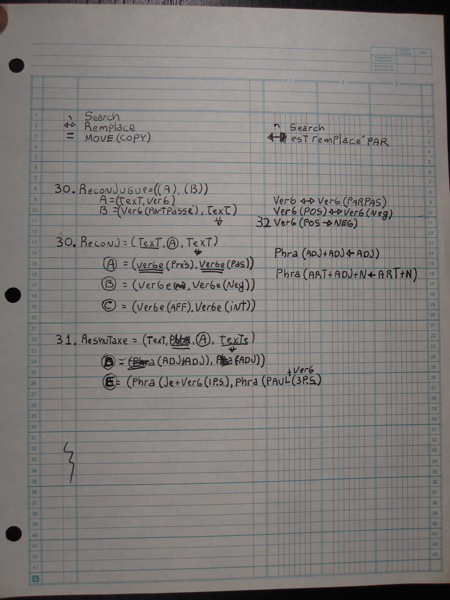 , Search
↔ Remplace
= MOVE (COPY)
^ Search
est remplacé PAR
30. RECONJUGUE=((A), (B))
A=(TEXT, verb)
B=(Verb (PartPassé), TEXT)
Verb ↔ Verb (PARPAS)
Verb (POS) ↔ Verb (Neg)
32 Verb (POS → NEG)
30. RECONJ = (TEXT, A, TEXT)
A = (verbe (Prés), Verbe (Pas)
B = (Verbe, Verbe (Neg)
C = (Verbe (AFF), Verbe (iNT))
Phra (ADJ+ADJ ← ADJ)
Phra (ART+ADJ+N ← ART+N)
31. ResynTaxe = (TexT, A, TexTe)
(ADJ+ADJ), (ADJ))
E = (Phra (Je+Verb (1PS), Phra (PAUL + Verb (3PS)